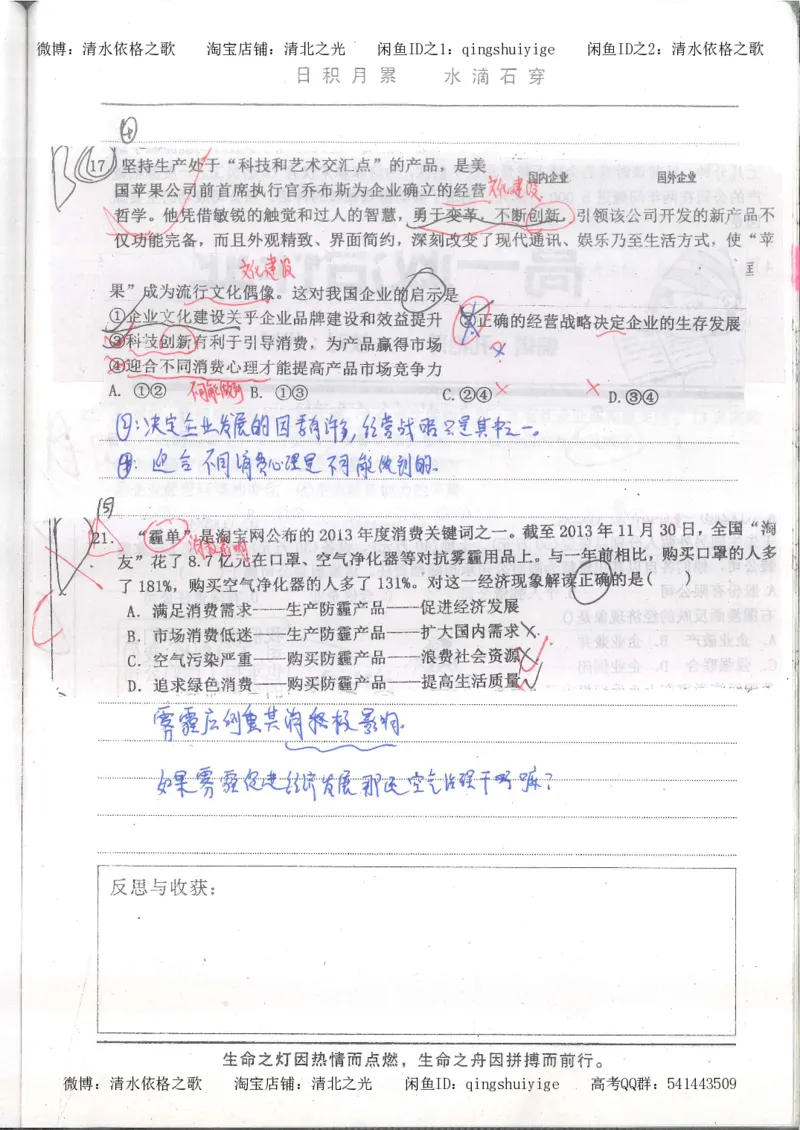 微博：清水依格之歌 淘宝店铺：清北之光 闲鱼ID之1：qingshuiyige 闲鱼ID之2：清水依格之歌
日积月累 水滴石穿
④
17 坚持生产处于“科技和艺术交汇点”的产品，是美
国内企业 国外企业
国苹果公司前首席执行官乔布斯为企业确立的经营 文化建设
哲学。他凭借敏锐的触觉和过人的智慧，勇于变革，不断创新，引领该公司开发的新产品不
仅功能完备，而且外观精致、界面简约，深刻改变了现代通讯、娱乐乃至生活方式，使“苹
文化建设
果”成为流行文化偶像。这对我国企业的启示是
①企业文化建设关乎企业品牌建设和效益提升 ②正确的经营战略决定企业的生存发展
③科技创新有利于引导消费，为产品赢得市场
④迎合不同消费心理才能提高产品市场竞争力
A. ①② 不可能做到 B. ①③ C.②④ D.③④
②：决定企业发展的因素有许多，经营战略只是其中之一。
④：迎合不同消费心理是不可能做到的。
⑤
21. “霾单”是淘宝网公布的 2013 年度消费关键词之一。截至 2013 年 11 月 30 日，全国“淘
消极影响
友”花了 8.7 亿元在口罩、空气净化器等对抗雾霾用品上。与一年前相比，购买口罩的人多
了 181%，购买空气净化器的人多了 131%。对这一经济现象解读正确的是( )
A. 满足消费需求——生产防霾产品——促进经济发展
B. 市场消费低迷——生产防霾产品——扩大国内需求
C. 空气污染严重——购买防霾产品——浪费社会资源
D. 追求绿色消费——购买防霾产品——提高生活质量
雾霾应侧重其消极影响。
如果雾霾促进经济发展那还空气治理干嘛？
反思与收获：
生命之灯因热情而点燃，生命之舟因拼搏而前行。
微博：清水依格之歌 淘宝店铺：清北之光 闲鱼ID：qingshuiyige 高考QQ群：541443509